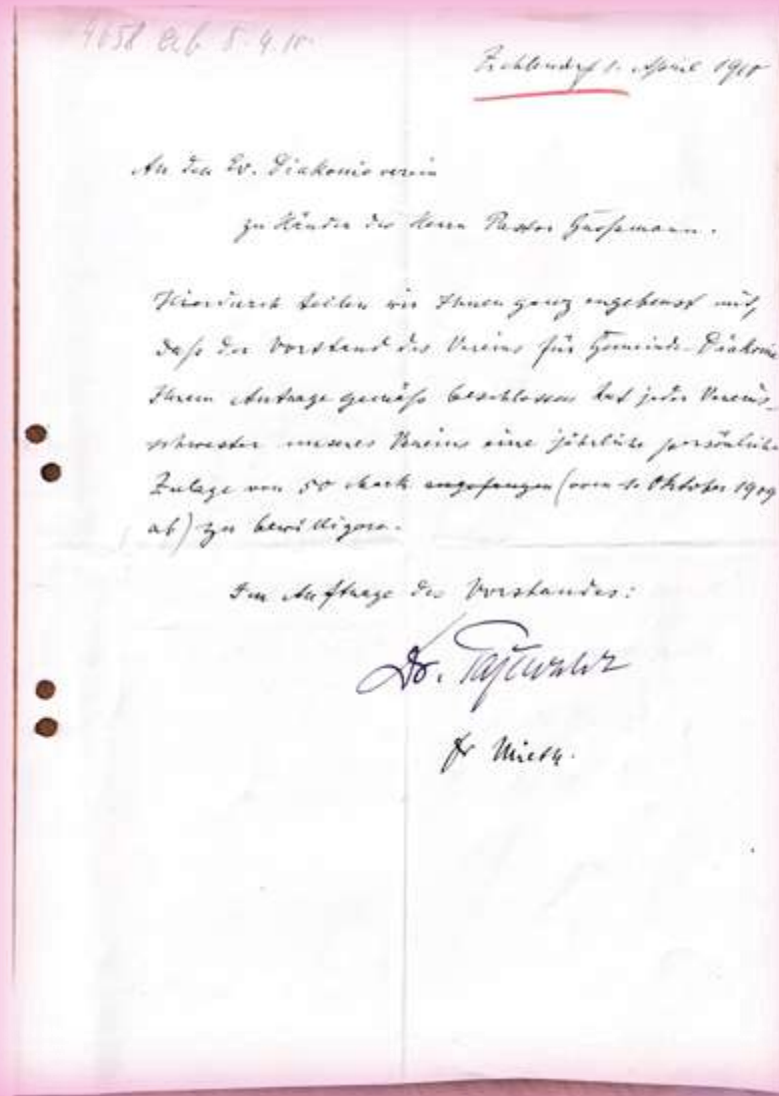 4658 5.4.10.
Zehlendorf 1. April 1910
An den Ev. Diakonieverein
zu Händen des Herrn Pastor
Hierdurch teilen wir Ihnen ganz ergebenst mit,
daß der Vorstand des Vereins für Gemeinde-Diakonie
Ihrem Antrage gemäß beschlossen hat jeder Vereins-
schwester unseres Vereins eine jährliche persönliche
Zulage von 50 Mark angefangen (vom 1. Oktober 1909
ab) zu bewilligen.
Im Auftrage des Vorstandes:
Dr.